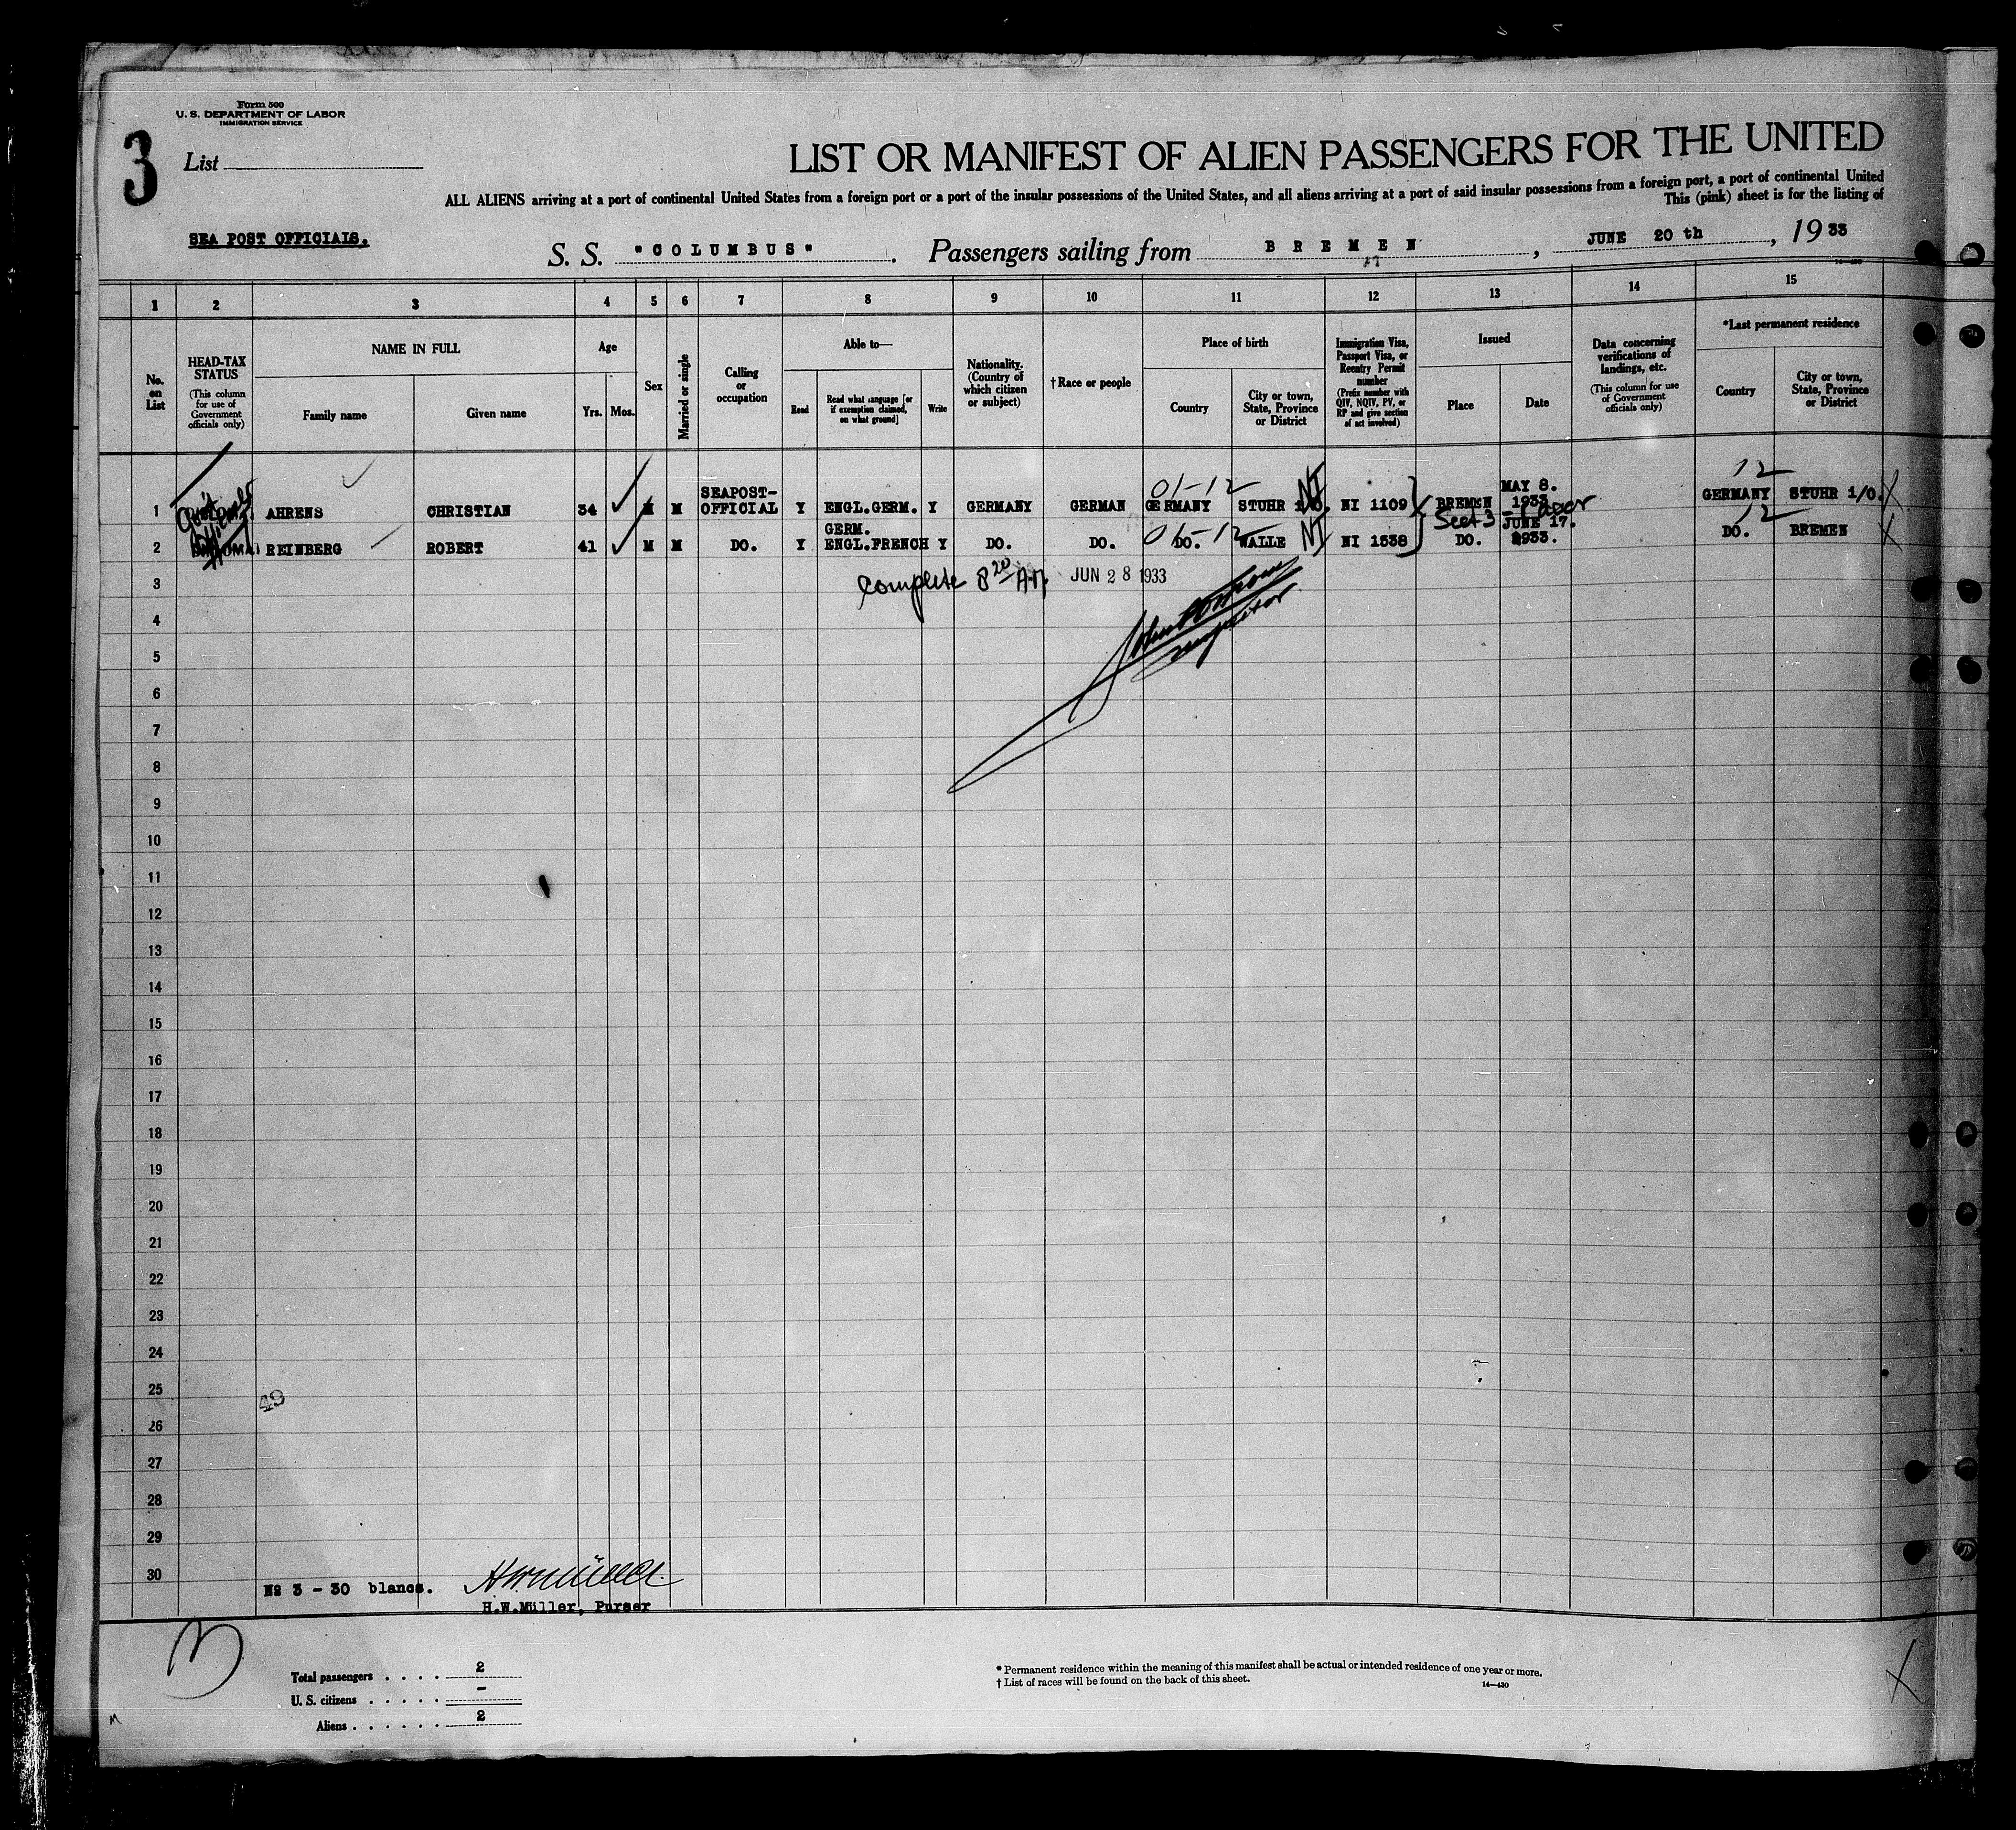 Form 500
U. S. DEPARTMENT OF LABOR
IMMIGRATION SERVICE
3
List
LIST OR MANIFEST OF ALIEN PASSENGERS FOR THE UNITED
ALL ALIENS arriving at a port of continental United States from a foreign port or a port of the insular possessions of the United States, and all aliens arriving at a port of said insular possessions from a foreign port, a port of continental United
This (pink) sheet is for the listing of
SEA POST OFFICIALS.
S. S. "COLUMBUS". Passengers sailing from BREMEN, JUNE 20 th, 19 33
1 2 3 4 5 6 7 8 9 10 11 12 13 14 15
No. on List
HEAD-TAX STATUS (This column for use of Government officials only)
NAME IN FULL
Family name
Given name
Age
Yrs. Mos.
Sex
Married or single
Calling or occupation
Able to—
Read
Read what language [or if exemption claimed, on what ground]
Write
Nationality. (Country of which citizen or subject)
† Race or people
Place of birth
Country
City or town, State, Province or District
Immigration Visa, Passport Visa, or Reentry Permit number (Prefix number with QIV, NQIV, PV, or RP and give section of act involved)
Issued
Place
Date
Data concerning verifications of landings, etc. (This column for use of Government officials only)
*Last permanent residence
Country
City or town, State, Province or District
01-12 NI
12
1 AHRENS CHRISTIAN 34 M M SEAPOST-OFFICIAL Y ENGL.GERM. Y GERMANY GERMAN GERMANY STUHR NI 1109 BREMEN MAY 8. 1933 GERMANY STUHR 1/O.
Sect 3-1
01-12 NI
12
2 REINBERG ROBERT 41 M M DO. Y GERM. ENGL.FRENCH Y DO. DO. DO. WALLE NI 1538 DO. JUNE 17. 1933. DO. BREMEN
Complete 8 20 A.M. JUN 28 1933
Inspector
3
4
5
6
7
8
9
10
11
12
13
14
15
16
17
18
19
20
21
22
23
24
25
49
26
27
28
29
30
№ 3 - 30 blancs.
H.W.Müller, Purser
3
Total passengers . . . . 2
U. S. citizens . . . . . -
Aliens . . . . . . 2
* Permanent residence within the meaning of this manifest shall be actual or intended residence of one year or more.
† List of races will be found on the back of this sheet.
14—430